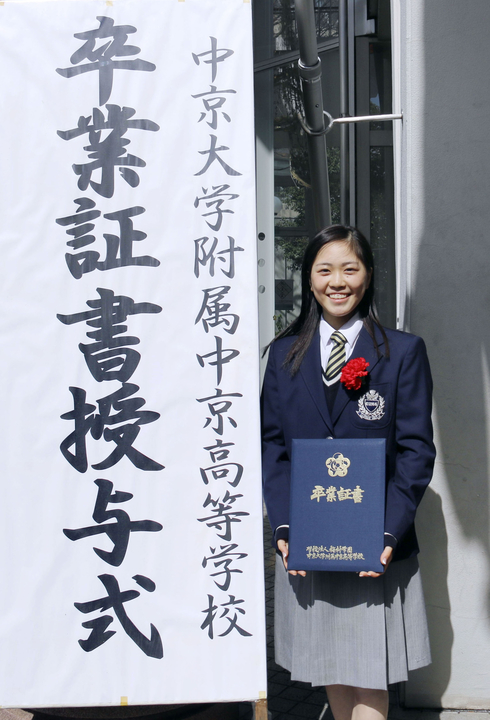 中京大学附属中京高等学校
卒業証書授与式
卒業証書
学校法人梅村学園
中京大学附属中京高等学校